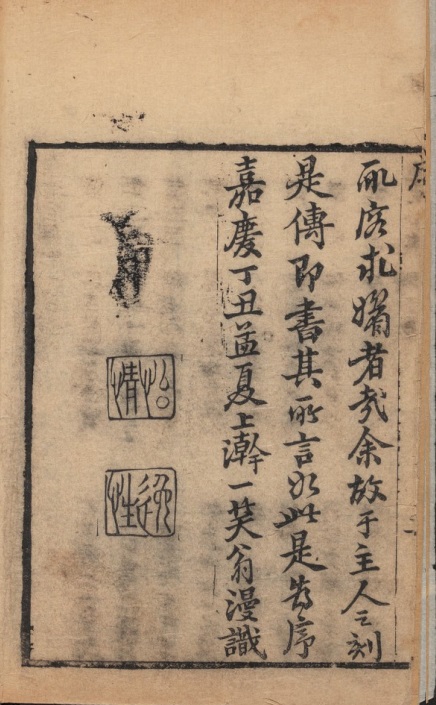 序
取容求媚者哉余故于主人之刻
是傳即書其所言如此是為序
嘉慶丁丑孟夏上澣一笑翁漫識
怡情
逸性